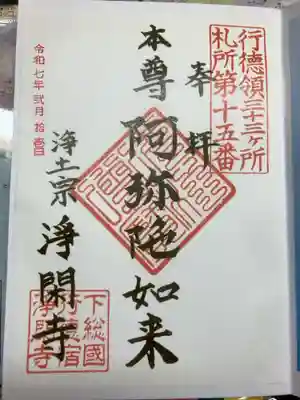 行徳領三十三ヶ所
札所第十五番
奉拝
本尊 阿弥陀如来
令和七年弐月拾壱日
浄土宗 浄閑寺
下総國
行徳宿
浄閑寺